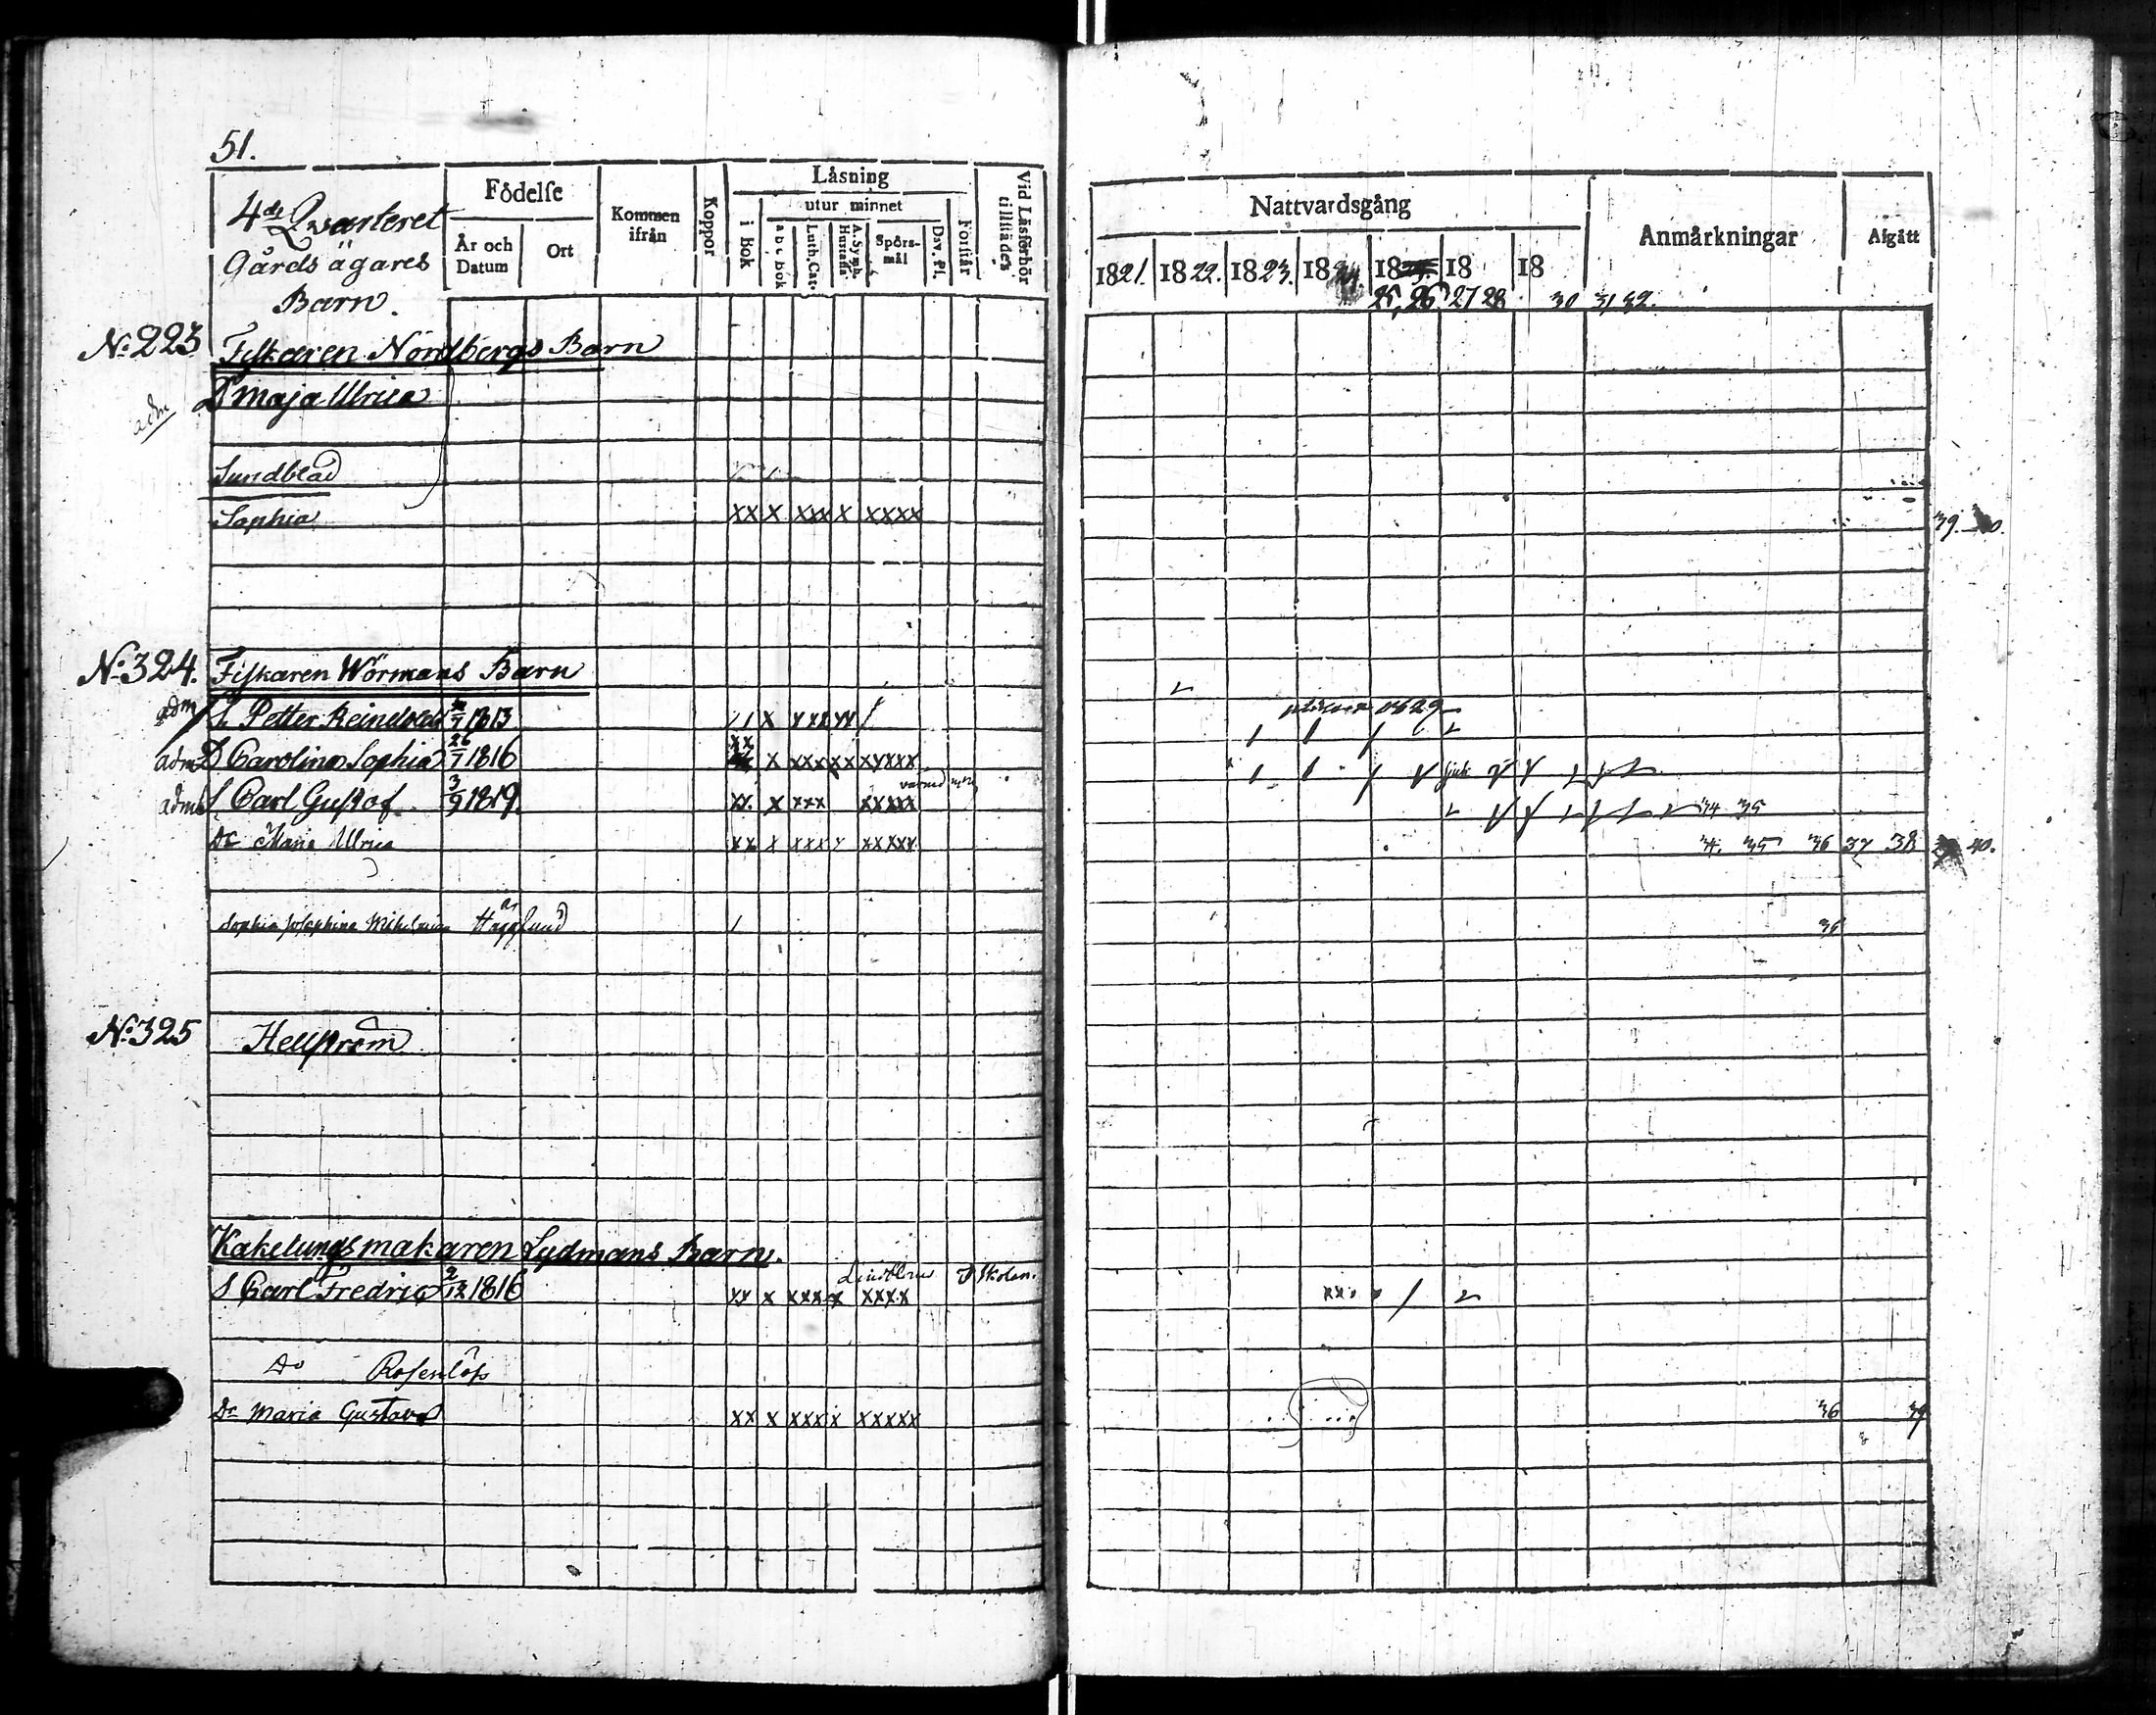 51.
4de Qvarteret
Gårds ägares
Barn.
Födelse
År och Datum
Ort
Kommen ifrån
Koppor
Läsning
utur minnet
i Bok
a b c bok
Luth. Cat.
A. Symb. Hustafla
Spörs-mål
Dav. Pl.
Förstår
Vid Läsförhör tillstädes
Nattvardsgång
1821. 1822. 1823. 18 18 18 18
25, 26, 27 28 30 31 32.
Anmärkningar
Afgått
No 223 Fiskaren Nordbergs Barn
adm D Maja Ulrica
Sundblad
Sophia xx x xxx x xxxx 39.
No 324. Fiskaren Wörmans Barn
adm S. Petter Reinhold 1813 x 1829
adm D Carolina Sophia 26/7 1816 xx x xxx xx xxxxx
adm S Carl Gustof 3/9 1819. xx. x xxx xxxxx 34 35
Dr Maria Ulrica xx x xxx x xxxxx 35 36 37 38 40.
Sophia Josephina Wilhelmina Hägglund 36
No 325 Hellström
Kakelungsmakaren Lydmans Barn.
S Carl Fredric 2/12 1816 xx x xxx x xxxx
Do Rosenlöfs
Dr Maria Gustava xx x xxx x xxxxx 36 39